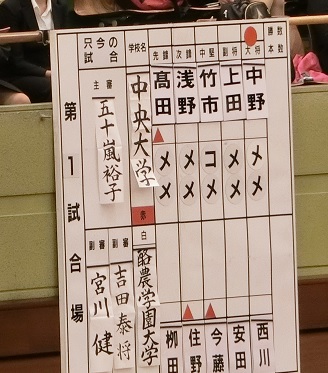 第1試合場
只今の
試合
主審
五十嵐裕子
副審
宮川健
副審
吉田泰将
学校名
中央大学
赤
白
酪農学園大学
先鋒
髙田
メメ
柳田
次鋒
浅野
メメ
住野
中堅
竹市
コメ
今藤
副将
上田
メメ
安田
大将
中野
メメ
西川
勝数
本数